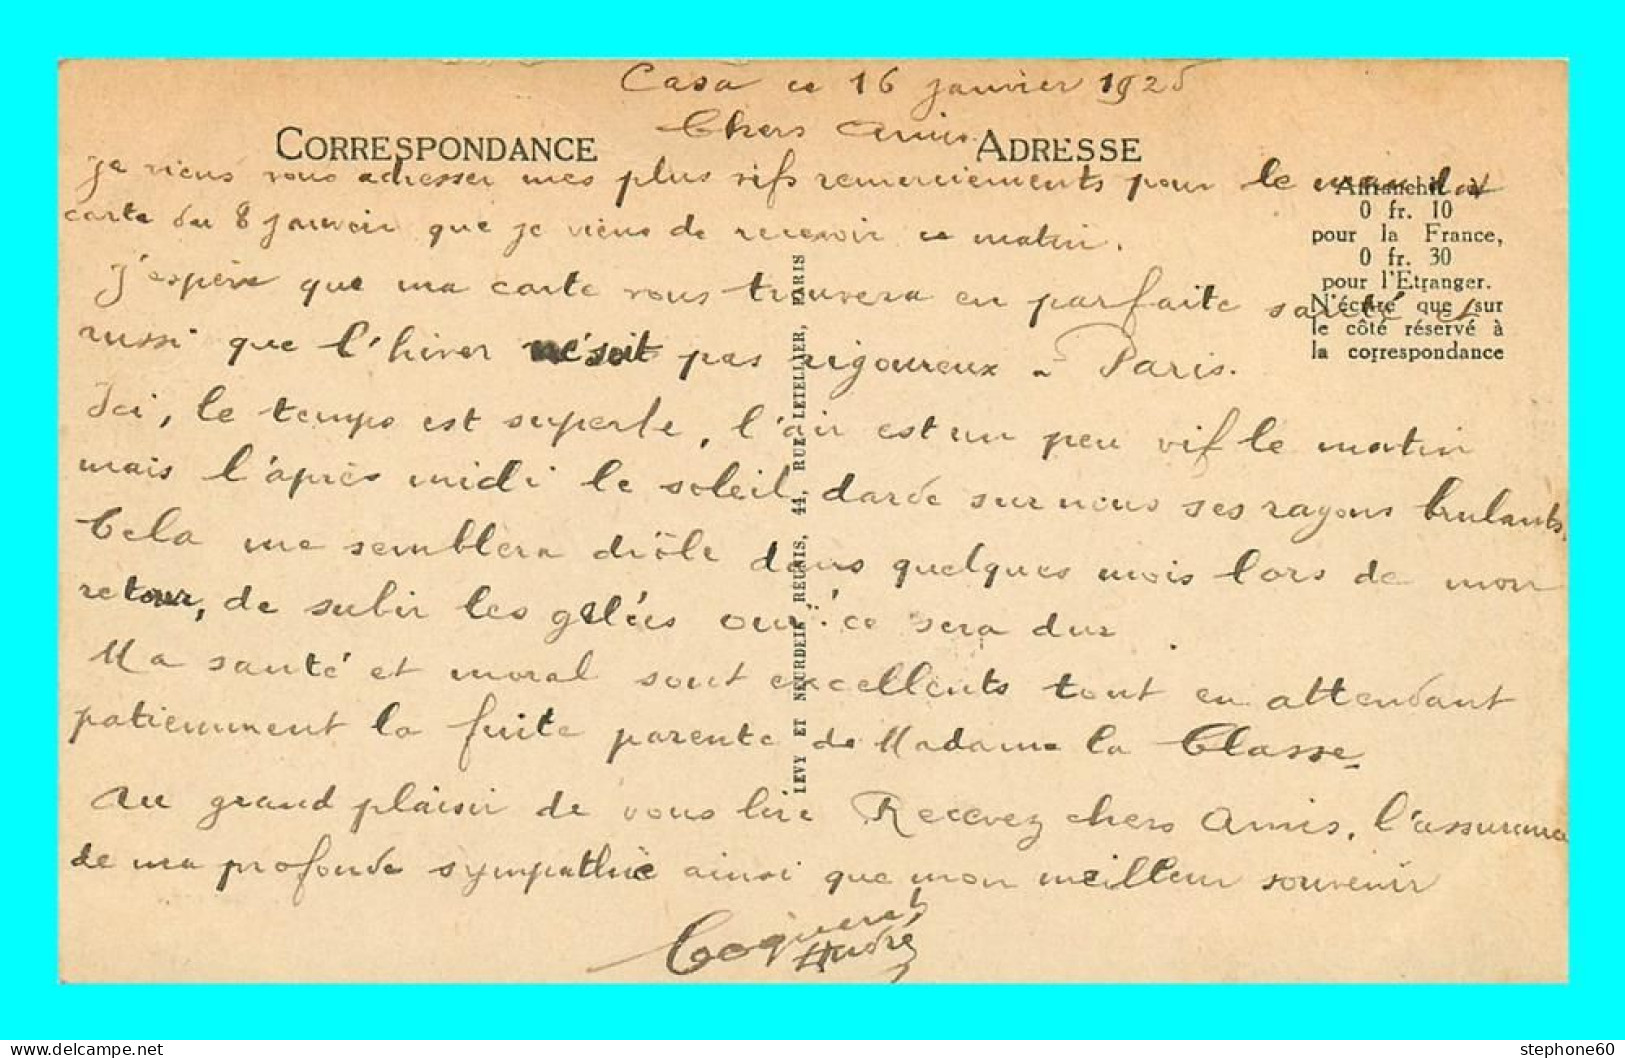 Casa ce 16 janvier 1925
Chers Amis
CORRESPONDANCE
ADRESSE
je viens vous adresser mes plus vifs remerciements pour le mandat
carte du 8 janvier que je viens de recevoir ce matin.
J'espère que ma carte vous trouvera en parfaite santé et
aussi que l'hiver ne soit pas rigoureux à Paris.
Ici, le temps est superbe, l'air est un peu vif le matin
mais l'après midi le soleil darde sur nous ses rayons brulants.
Cela me semblera drôle dans quelques mois lors de mon
retour, de subir les gelées oui! ce sera dur
Ma santé et moral sont excellents tout en attendant
patiemment la fuite parente de Madame la Classe.
Au grand plaisir de vous lire Recevez chers Amis, l'assurance
de ma profonde sympathie ainsi que mon meilleur souvenir
Coquerel
André
Affranchir à
0 fr. 10
pour la France,
0 fr. 30
pour l'Etranger.
N'écrire que sur
le côté réservé à
la correspondance
LEVY ET NEURDEIN REUNIS, 44, RUE LETELLIER, PARIS
Delcampe.net
stephone60